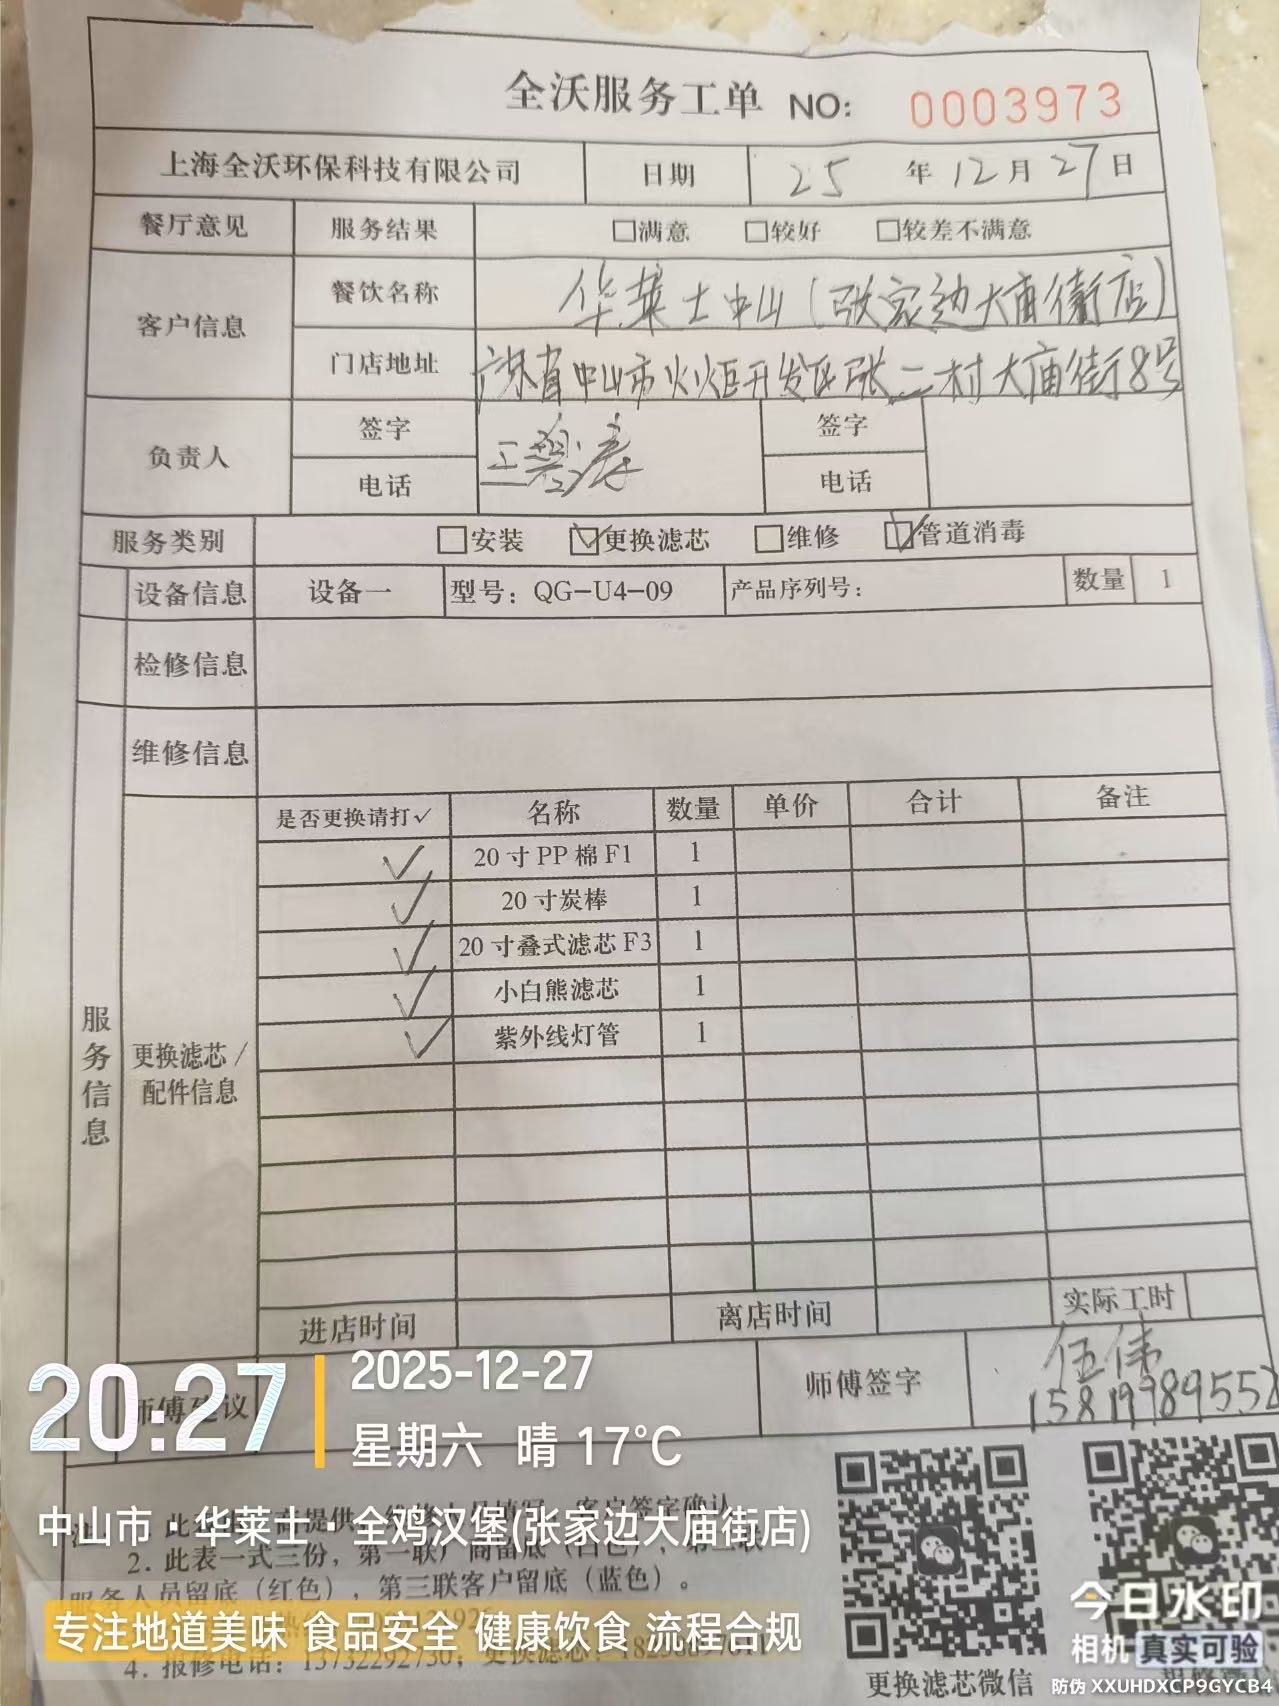 全沃服务工单 NO: 0003973
上海全沃环保科技有限公司 日期 25 年 12 月 27 日
餐厅意见 服务结果 □满意 □较好 □较差不满意
客户信息 餐饮名称 华莱士中山(张家边大庙街店)
门店地址 广东省中山市火炬开发区张二村大庙街8号
负责人 签字 签字
电话 电话
服务类别 □安装 ☑更换滤芯 □维修 ☑管道消毒
设备信息 设备一 型号：QG-U4-09 产品序列号： 数量 1
检修信息
维修信息
服务信息
更换滤芯/
配件信息
是否更换请打✓ 名称 数量 单价 合计 备注
✓ 20寸PP棉F1 1
✓ 20寸炭棒 1
✓ 20寸叠式滤芯F3 1
✓ 小白熊滤芯 1
✓ 紫外线灯管 1
进店时间 离店时间 实际工时
师傅建议 师傅签字 伍伟
15819989552
20:27
2025-12-27
星期六 晴 17°C
中山市·华莱士·全鸡汉堡(张家边大庙街店)
2. 此表一式三份，第一联厂商留底（白色），第二联
服务人员留底（红色），第三联客户留底（蓝色）。
专注地道美味 食品安全 健康饮食 流程合规
4. 报修电话：13732292730；更换滤芯：
更换滤芯微信
今日水印
相机 真实可验
防伪 XXUHDXCP9GYCB4